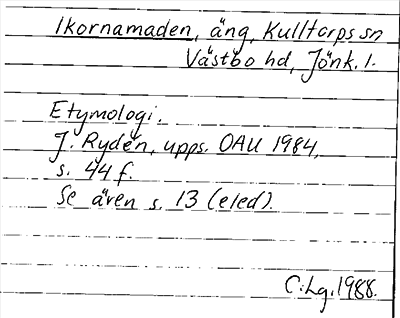 Ikornamaden, äng, Kulltorps sn
Västbo hd, Jönk. l.
Etymologi.
J. Rydén, upps. OAU 1984,
s. 44 f.
Se även s. 13 (eled).
C:Lg. 1988.